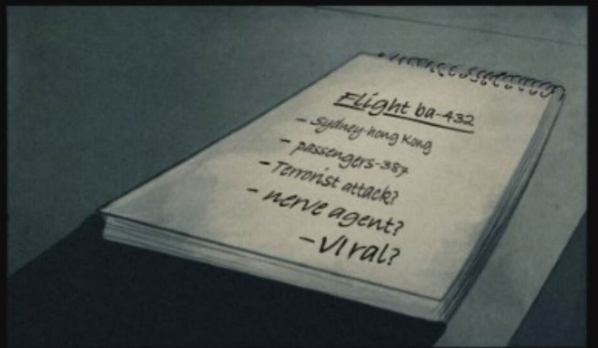 Flight ba-432
- Sydney-hong Kong
- passengers-387
- Terrorist attack?
- nerve agent?
- Viral?